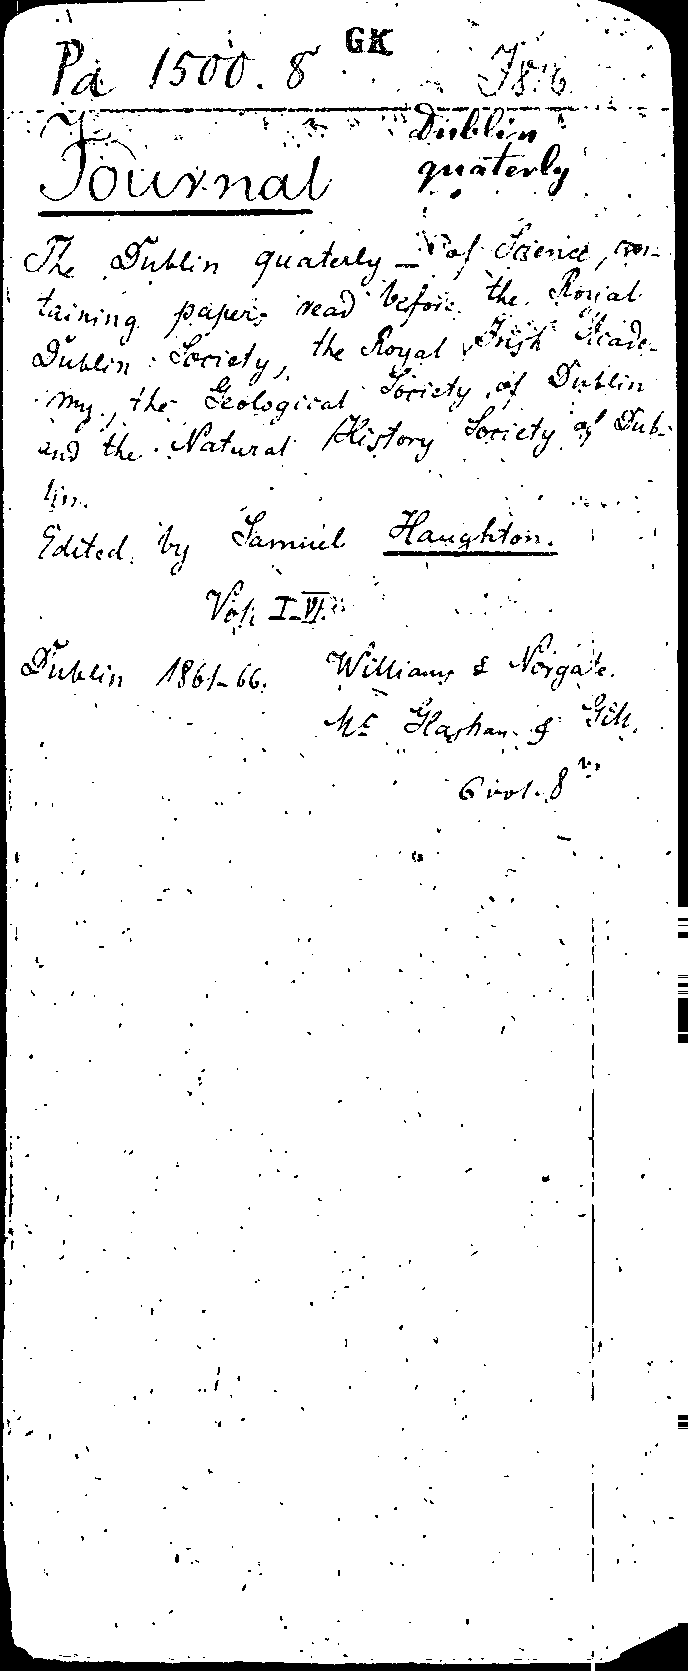 Pa 1500.8 GK
Dublin
Journal quaterly
The Dublin quaterly — of Science, con-
taining papers read before the Royal
Dublin Society, the Royal Irish Acade-
my, the Geological Society of Dublin
and the Natural History Society of Dub-
lin.
Edited by Samuel Haughton.
Vol. I-VI.
Dublin 1861-66. Williams & Norgate.
Mc Glashan & Gill.
6 vol. 8